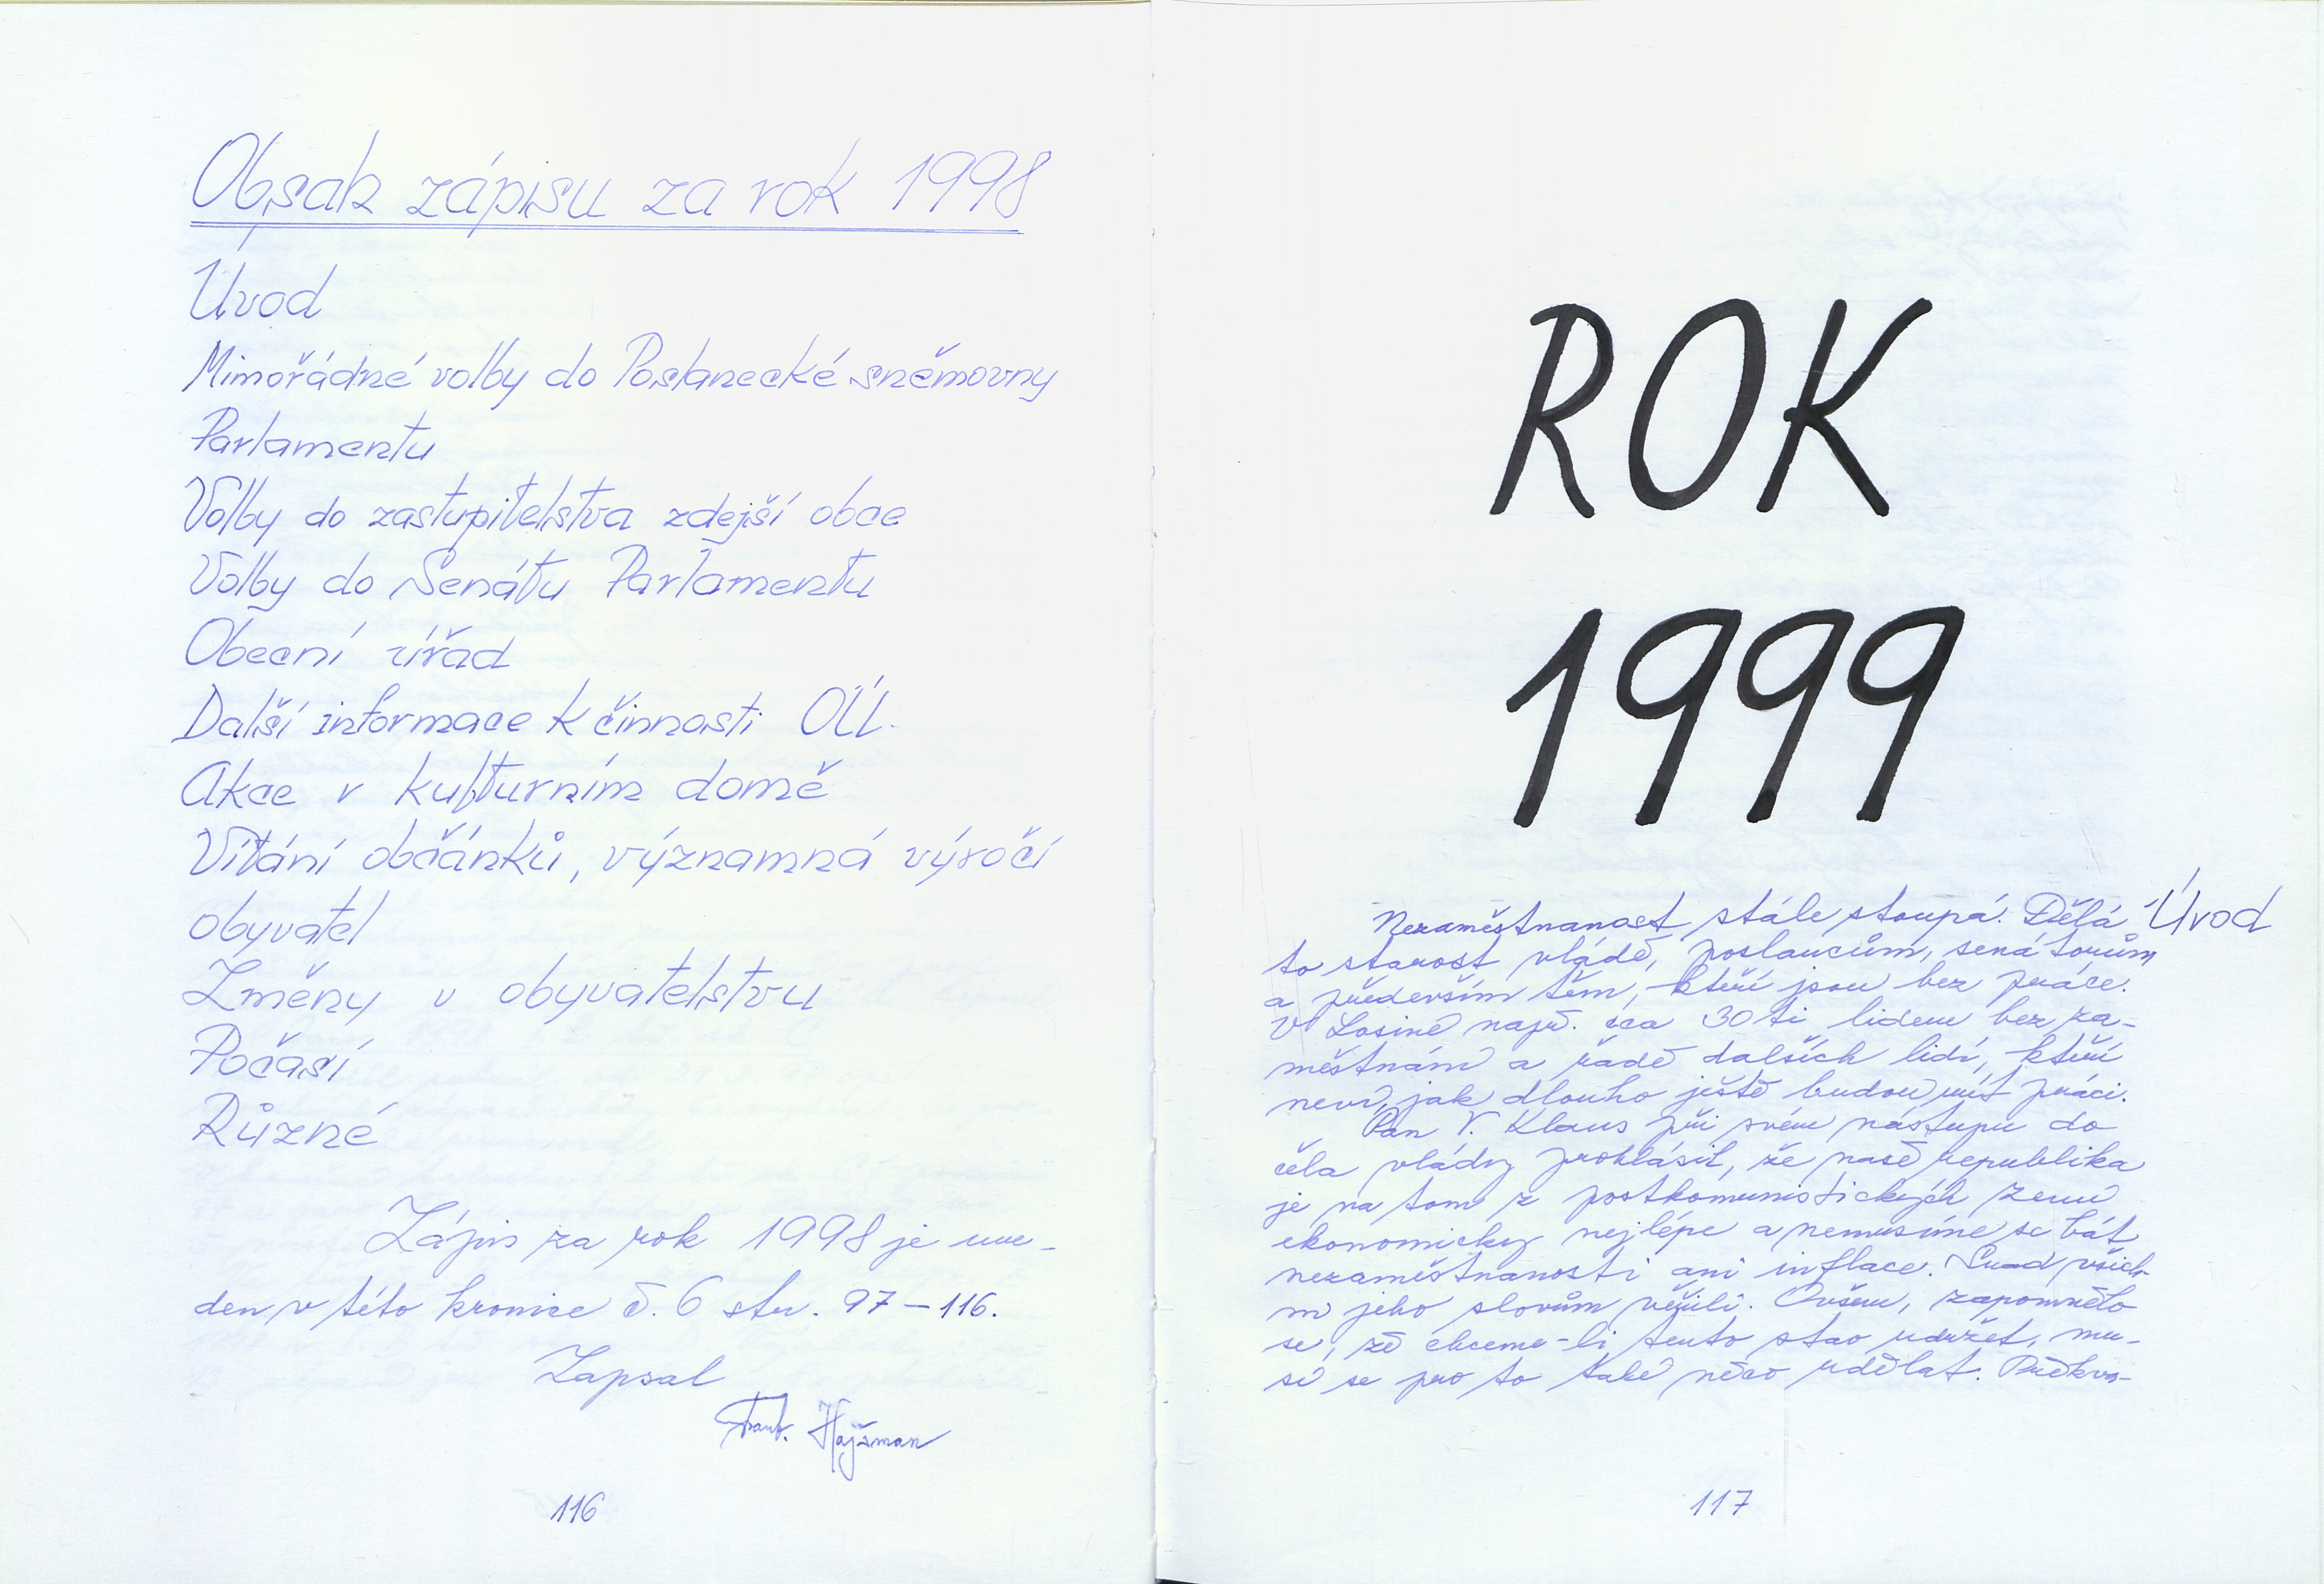 Obsah zápisu za rok 1998
Úvod
Mimořádné volby do Poslanecké sněmovny
Parlamentu
Volby do zastupitelstva zdejší obce
Volby do Senátu Parlamentu
Obecní úřad
Další informace k činnosti OÚ.
Akce v kulturním domě
Vítání občánků, významná výročí
obyvatel
Změny v obyvatelstvu
Počasí
Různé
Zápis za rok 1998 je uve-
den v této kronice č. 6 str. 97 – 116.
Zapsal
Frant. Hajšman
116
ROK
1999
Úvod
Nezaměstnanost stále stoupá. Dělá
to starost vládě, poslancům, senátorům
a především těm, kteří jsou bez práce.
V Losiné např. cca 30 ti lidem bez za-
městnání a řadě dalších lidí, kteří
neví, jak dlouho ještě budou mít práci.
Pan V. Klaus při svém nástupu do
čela vlády prohlásil, že naše republika
je na tom z postkomunistických zemí
ekonomicky nejlépe a nemusíme se bát
nezaměstnanosti ani inflace. Snad všich-
ni jeho slovům věřili. Ovšem, zapomnělo
se, že chceme-li tento stav udržet, mu-
sí se pro to také něco udělat. Překva-
117